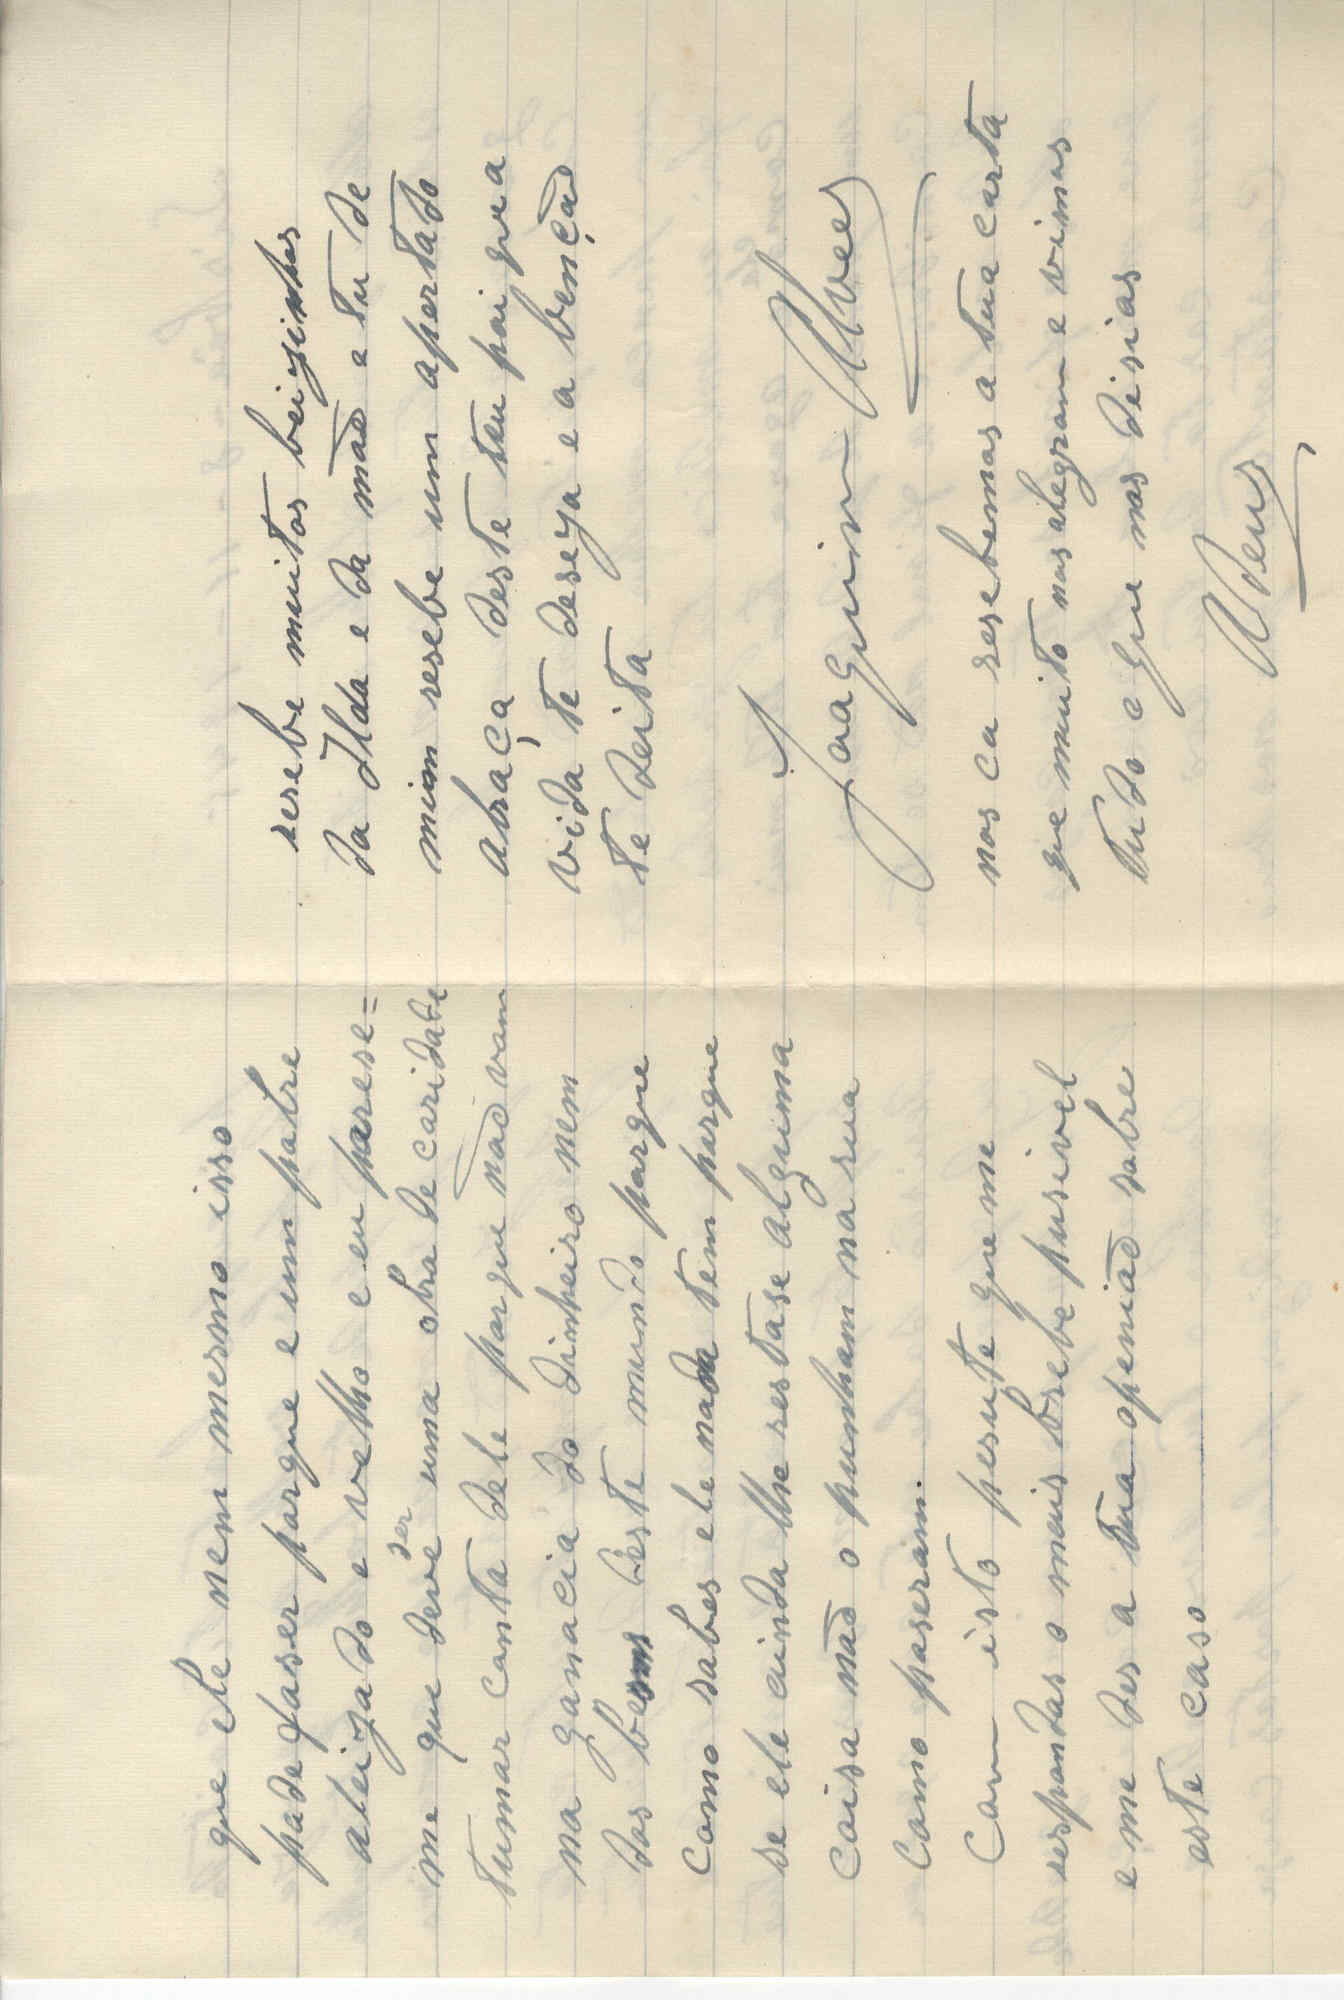 que ele nem mesmo isso
pode faser porque e um pobre
aleijado e velho e eu parese=
me que deve ser uma obra de caridade
tumar conta dele porque não vam
na ganacia do dinheiro nem
dos bems deste mundo porque
como sabes ele nada tem porque
se ele ainda lhe restase alguma
coisa não o punham na rua
como poseram.
Com isto pesute que me
respondas o mais brebe pusivel
e me des a tua openião sobre
este caso
resebe muitos beijinhos
da Ilda e da mão e tu de
mim resebe um apertado
abraça deste teu pai que a
vida te deseja e a benção
te deita
Joaquim Alves
nos ca resebemos a tua carta
que muito nos alegram e vimos
tudo e que nos disias
Adeus